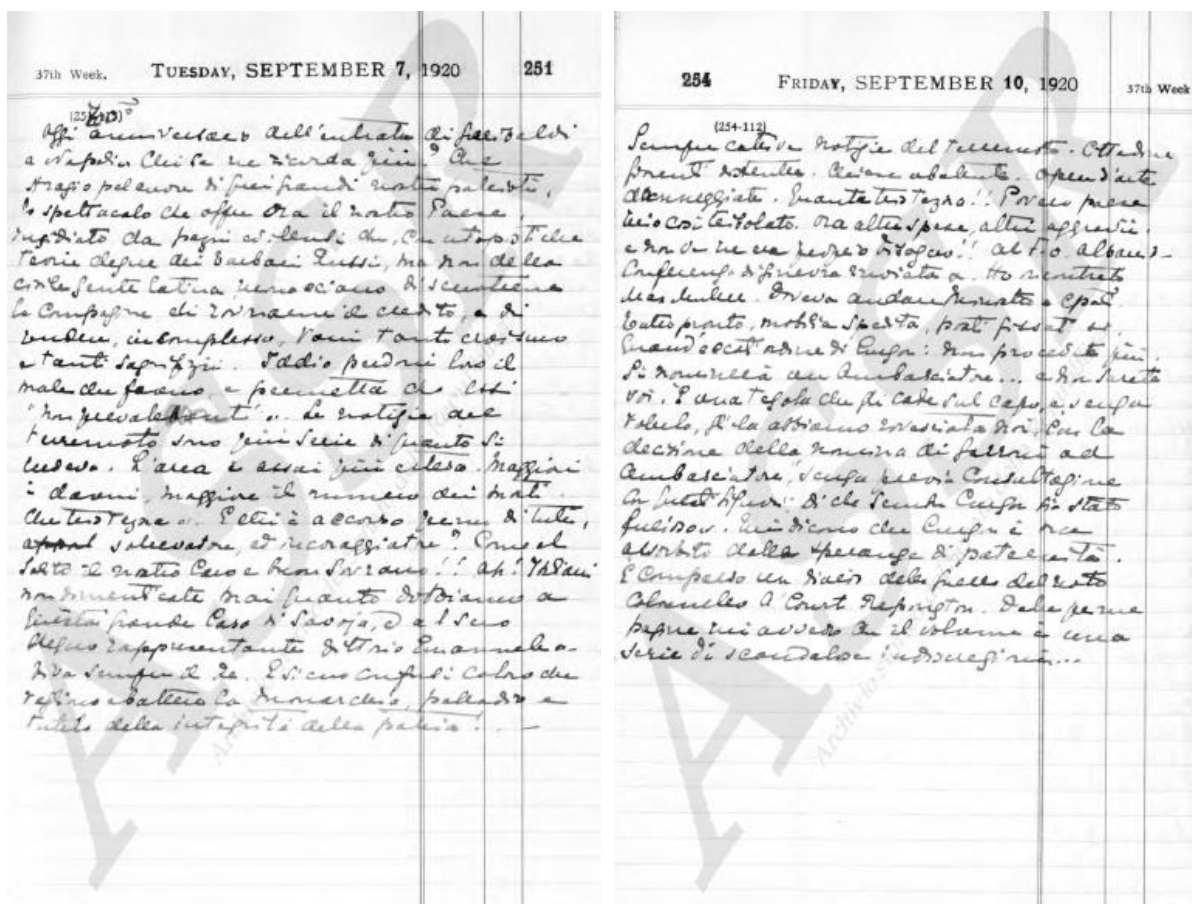 37th Week. TUESDAY, SEPTEMBER 7, 1920 251
Oggi anniversario dell'entrata di Garibaldi
a Napoli. Chi se ne ricorda più? Che
strazio pel cuore di quei grandi nostri patrioti,
lo spettacolo che offre ora il nostro Paese,
insidiato da pazzi violenti che, con utopistiche
teorie degne dei barbari Russi, ma non della
civile gente latina minacciano di scuotere
la compagine, di rovinare il credito, e di
rendere, in complesso, vani tanto eroismo
e tanti sagrifizii. Iddio perdoni loro il
male che fanno e permetta che essi
"non prevalebunt".. Le notizie del
terremoto sono più serie di quanto si
credeva. L'area è assai più estesa. Maggiori
i danni, maggiore il numero dei morti.
Che tristezza.. E chi è accorso primo di tutti,
sollevatore, ed incoraggiatore? Come al
solito il nostro Caro e buon Sovrano!! Ah! Italiani
non dimenticate mai quanto dobbiamo a
questa grande Casa di Savoja, e al suo
degno rappresentante Vittorio Emanuele.
Viva sempre il Re. E sieno confusi coloro che
la monarchia, palladio e
tutela della integrità della patria!..
254 FRIDAY, SEPTEMBER 10, 1920 37th Week
(254-112)
Sempre cattive notizie del terremoto. Cittadine
fiorenti distrutte. Chiese abbattute. Opere d'arte
danneggiate. Quanta tristezza!! Povero paese
mio così tribolato. Ora altre spese, altri aggravii
e non ve ne era proprio bisogno!! Al F.O.
Conferenza di Ginevra rinviata. Ho incontrato
Doveva andare Ministro a
tutto pronto, mobilia spedita, posti fissati
quando ordine di Curzon: non procedete più.
Si nominerà un Ambasciatore... e non sarete
voi. È una tegola che gli cade sul capo, e senza
volerlo, gli la abbiamo rovesciata noi, con la
decisione della nomina di Garroni ad
Ambasciatore, senza previa consultazione
con questi Signori: di che sembra Curzon sia stato
furioso. Qui dicono che Curzon è ora
assorbito dalla speranza di paternità.
È comparso un diario della guerra del noto
Colonnello A'Court Repington. Dalle prime
pagine mi avvedo che il volume è una
serie di scandalose indiscrezioni...